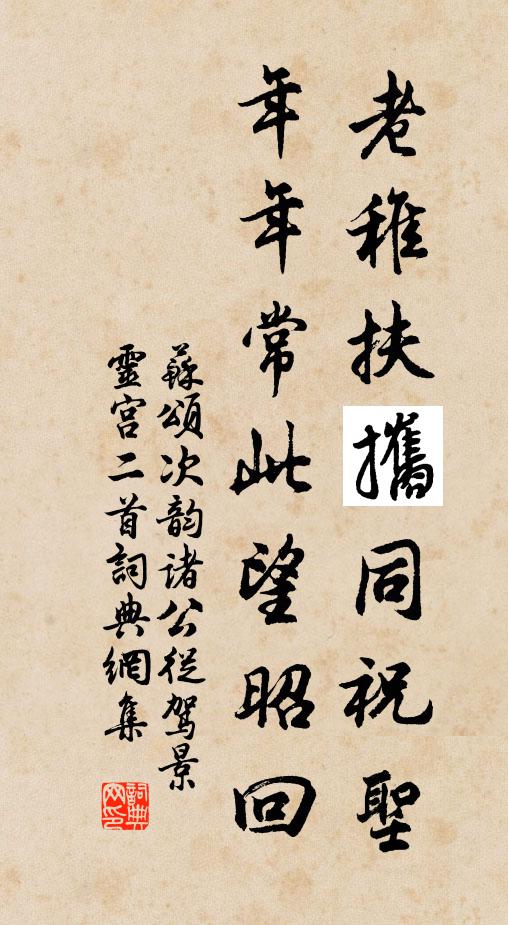 老稚扶攜同祝聖
年年常此望昭回
蘇頌次韵诸公從駕景
靈宫二首詞典網集
詞典网印